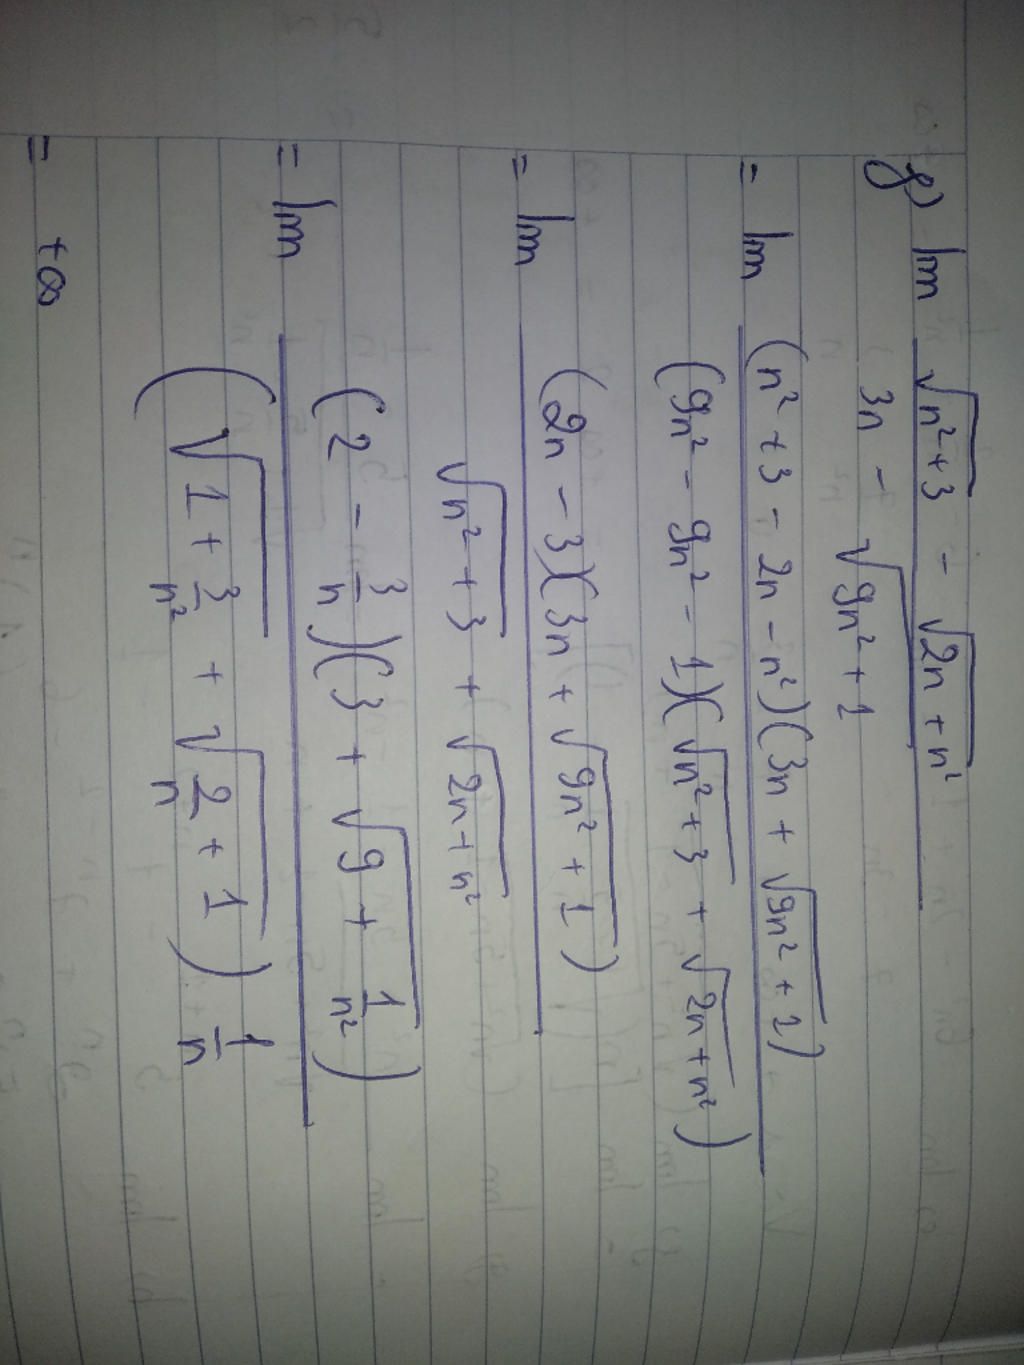 g) lim √(n²+3) - √(2n + n²)
3n - √(9n² + 1)
= lim (n² + 3 - 2n - n²)(3n + √(9n² + 1))
(9n² - 9n² - 1)(√(n² + 3) + √(2n + n²))
= lim (2n - 3)(3n + √(9n² + 1))
√(n² + 3) + √(2n + n²)
= lim (2 - 3/n)(3 + √(9 + 1/n²))
(√(1 + 3/n²) + √(2/n + 1)) 1/n
= +∞